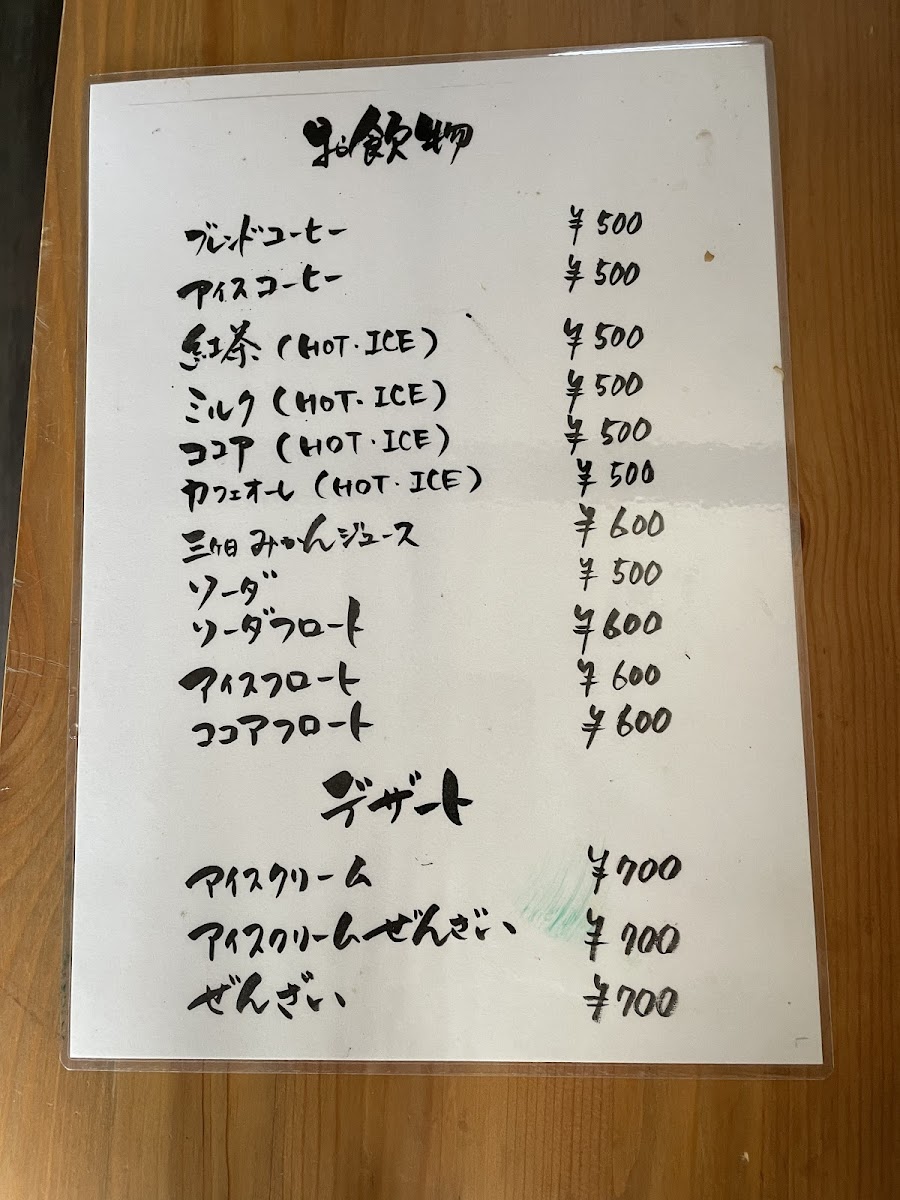 お飲物
ブレンドコーヒー ¥500
アイスコーヒー ¥500
紅茶 (HOT・ICE) ¥500
ミルク (HOT・ICE) ¥500
ココア (HOT・ICE) ¥500
カフェオーレ (HOT・ICE) ¥500
三ケ日みかんジュース ¥600
ソーダ ¥500
ソーダフロート ¥600
アイスフロート ¥600
ココアフロート ¥600
デザート
アイスクリーム ¥700
アイスクリームぜんざい ¥700
ぜんざい ¥700